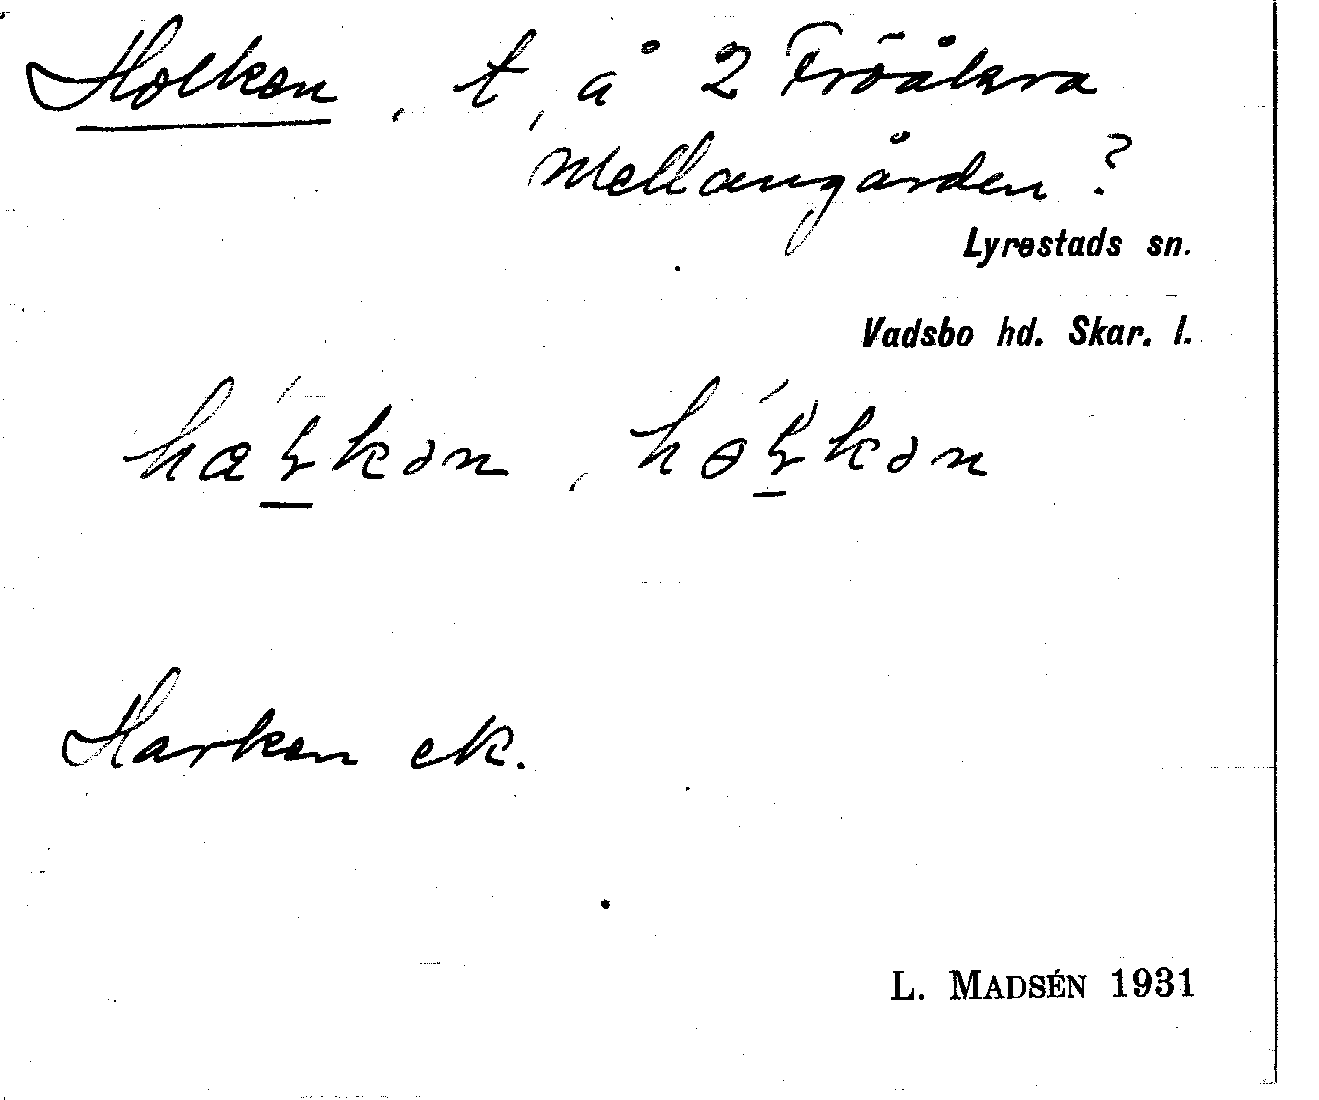 Holken, t, å 2 Fröåkra
Mellangården ?
Lyrestads sn.
Vadsbo hd. Skar. l.
Harken ek.
L. MADSÉN 1931